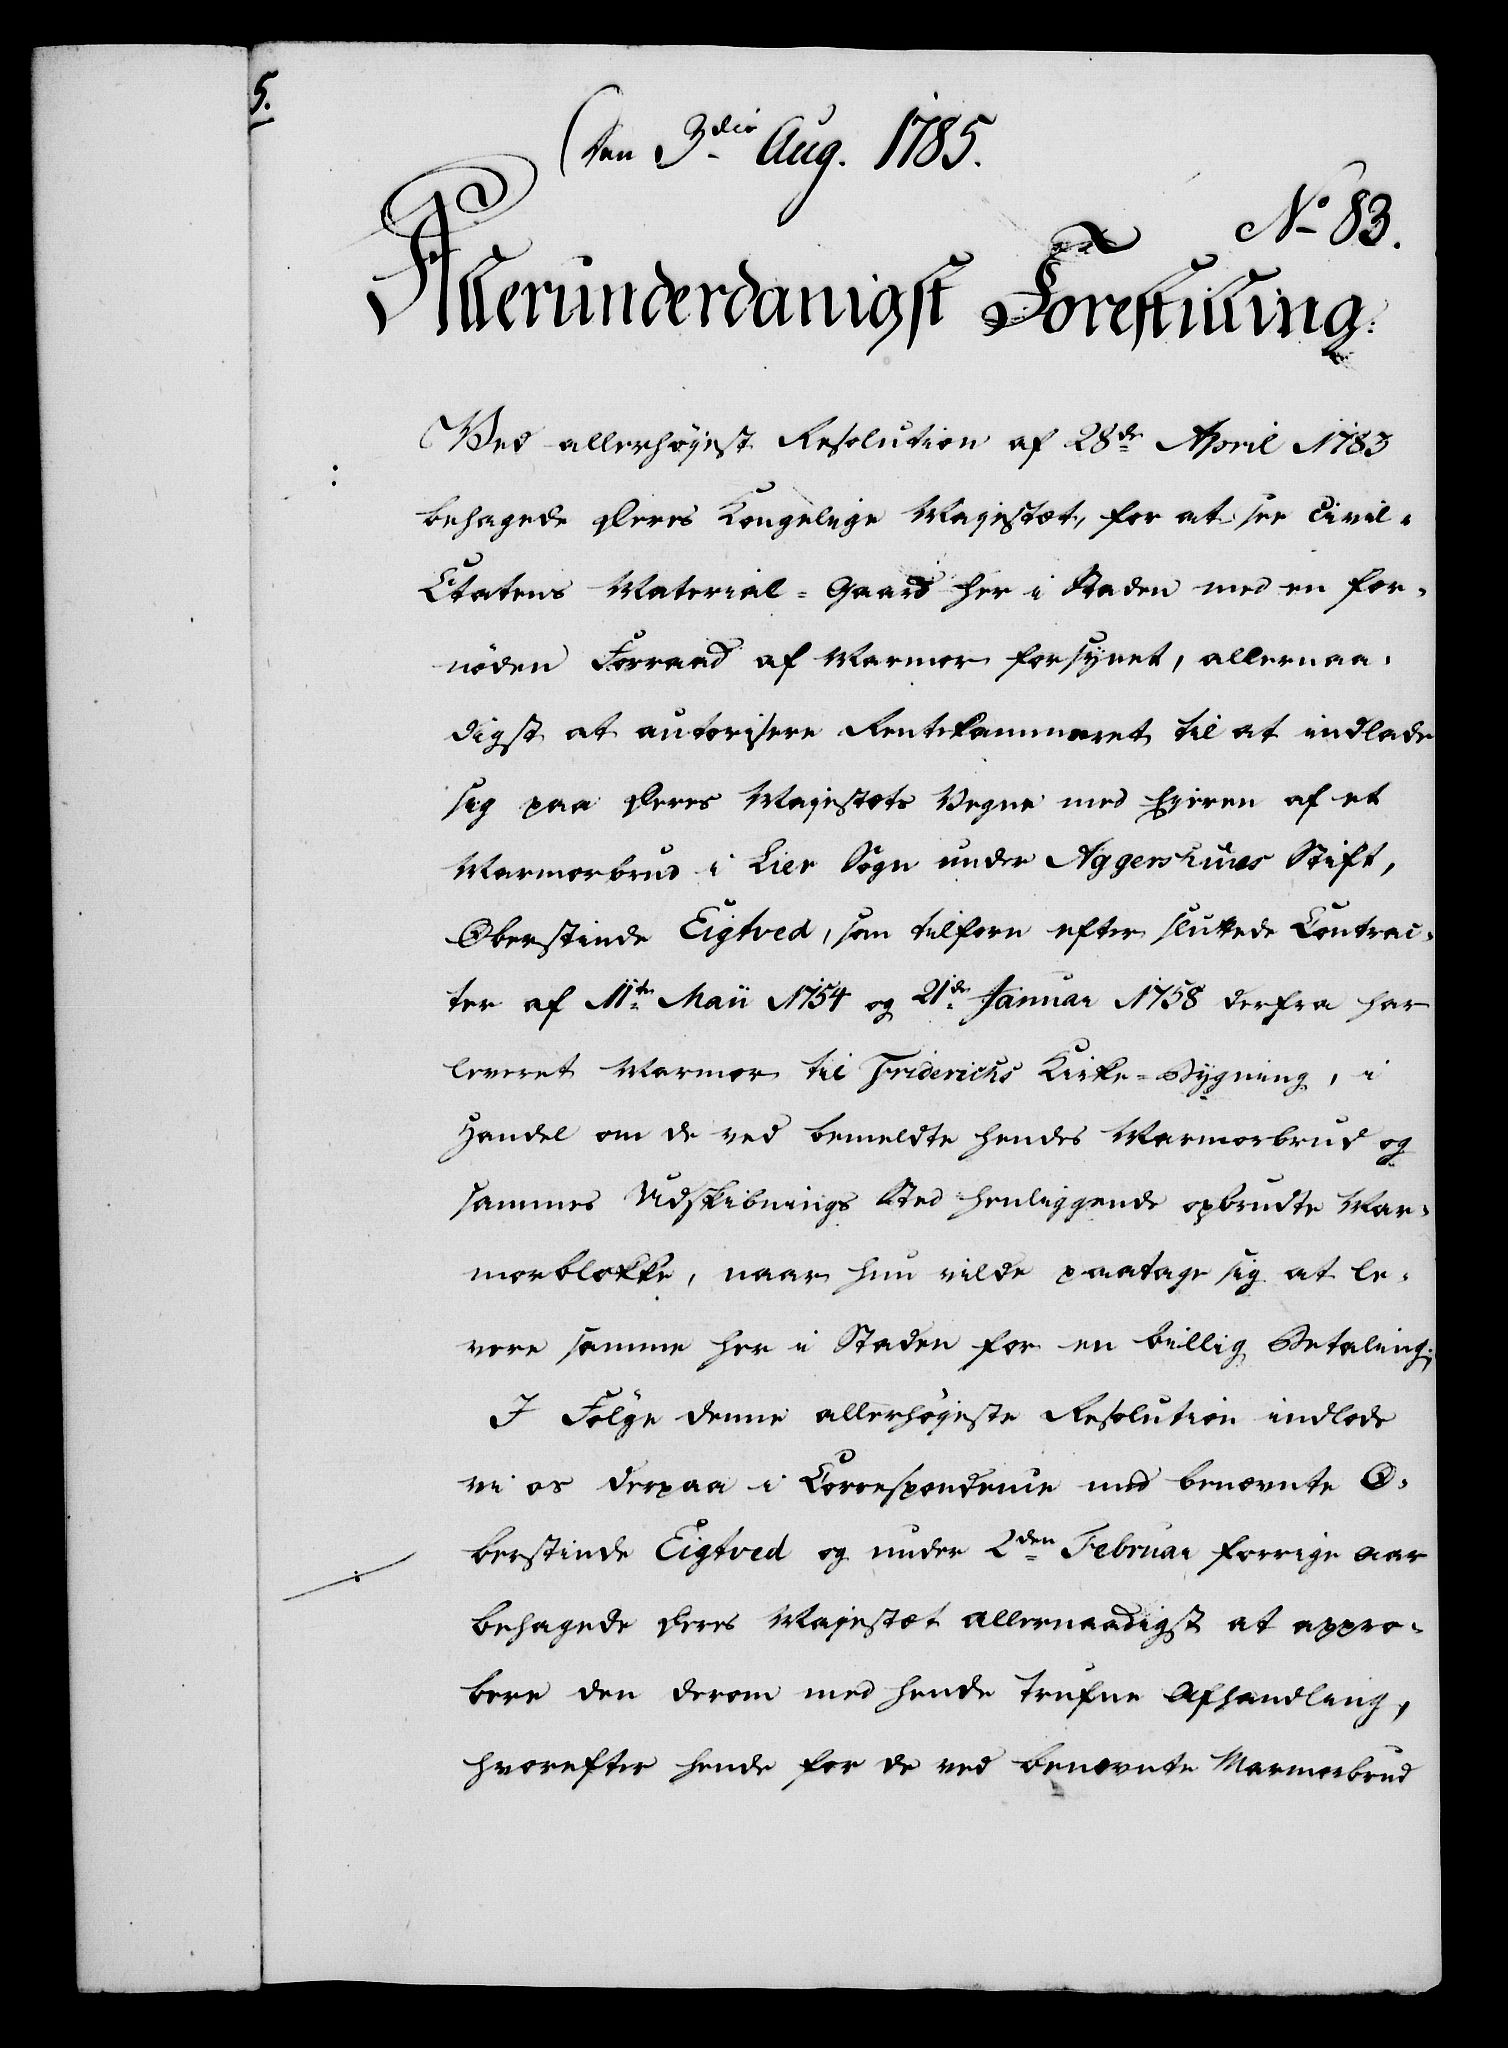 5.
Den 3die Aug. 1785.
No 83.
Allerunderdanigst Forestilling.
Ved allerhøyest Resolution af 28de April 1783
behagede Deres Kongelige Majestæt, for at see Civil-
Etatens Material-Gaard her i Staden med en for-
nöden Forraad af Marmor forsÿnet, allernaa-
digst at autorisere Rentekammeret til at indlade
sig paa Deres Majestæts Vegne med Ejeren af et
Marmorbrud i Lier Sogn under Aggershuus Stift,
Oberstinde Eigtved, som tilforn efter sluttede Contrac-
ter af 11te Maii 1754 og 21de Januar 1758 derfra har
leveret Marmor til Friderichs Kirke-Bÿgning, i
Handel om de ved bemeldte hendes Marmorbrud og
sammes Udskibnings Sted henliggende opbrudte Mar-
morblokke, naar hun vilde paatage sig at le-
vere samme her i Staden for en billig Betaling;
I Fölge denne allerhöjeste Resolution indlode
vi os derpaa i Correspondence med benævnte O-
berstinde Eigtved og under 2den Februar forrige Aar
behagede Deres Majestæt allernaadigst at appro-
bere den derom med hende trufne Afhandling,
hvorefter hende for de ved benævnte Marmorbrud